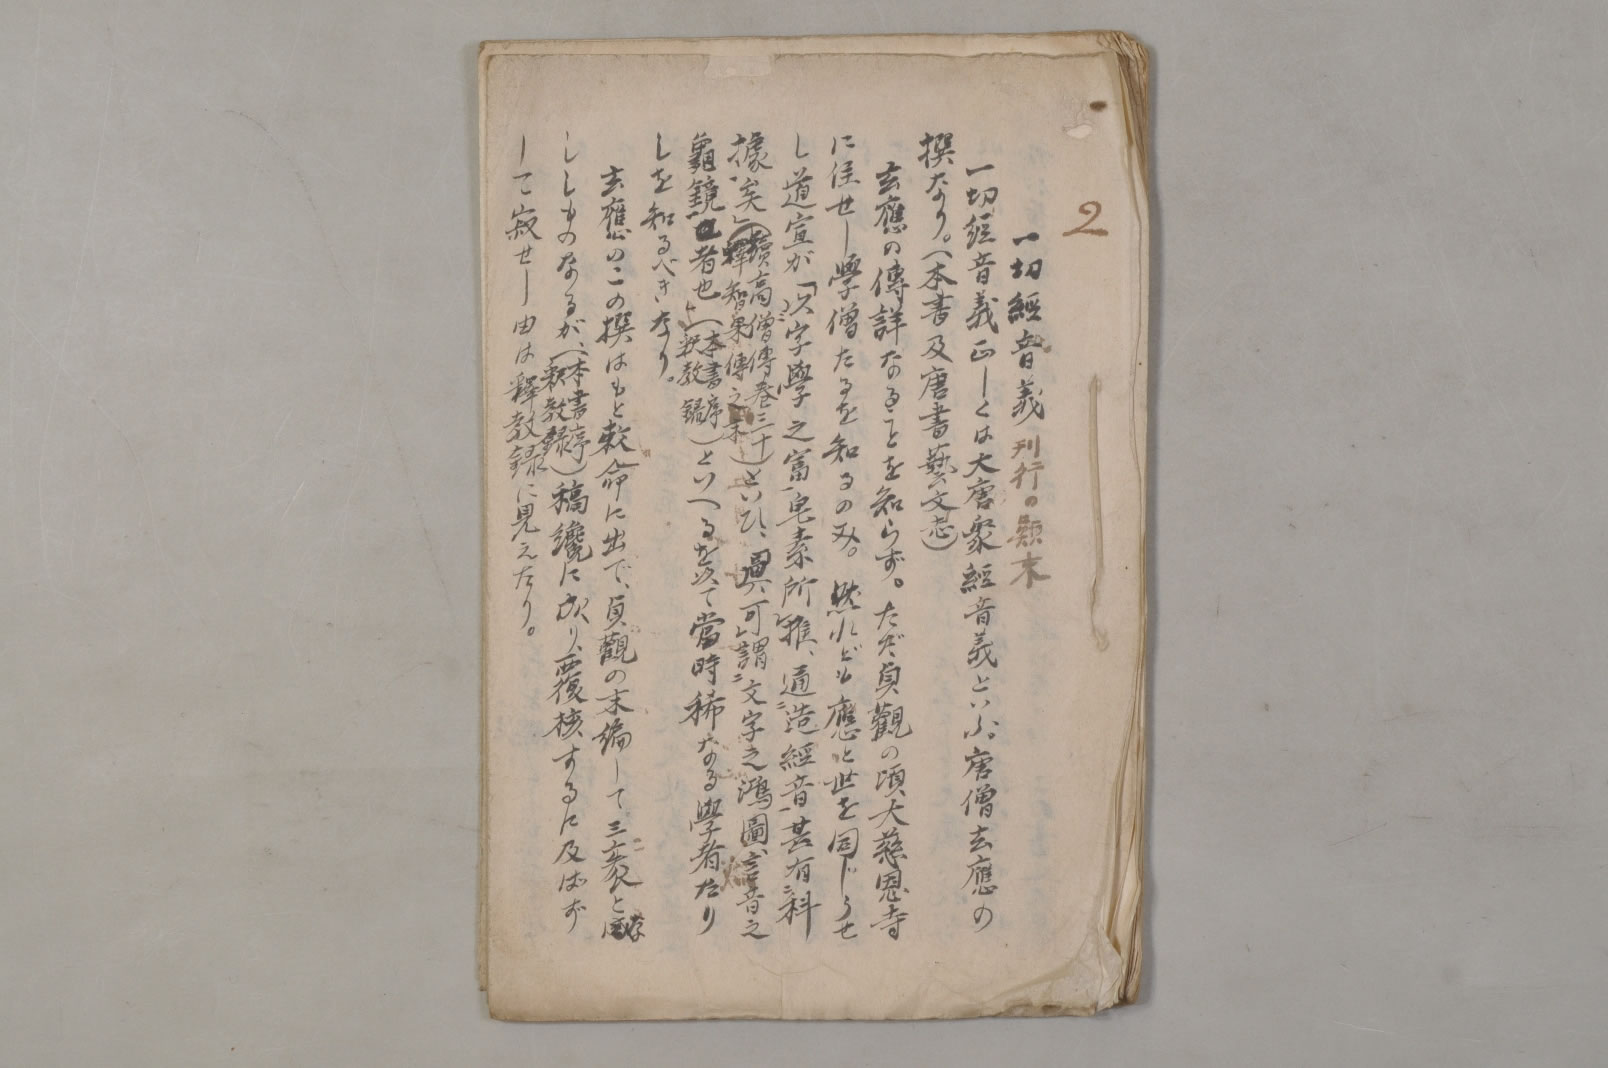 2
一切經音義刊行の顚末
一切經音義正しくは大唐衆經音義といふ。唐僧玄應の
撰なり。(本書及唐書藝文志)
玄應の傳詳なることを知らず。ただ貞觀の頃大慈恩寺
に住せし學僧たるを知るのみ。然れども應と世を同じうせ
し道宣が「以字學之富皂素所推、通造經音甚有科
據矣」(續高僧傳卷三十釋智果傳之末)といひ、輿可謂文字之鴻圖、言音之
龜鏡者也」(本書序釈教録)といへるを以て當時稀なる學者たり
しを知るべきなり。
玄應のこの撰はもと敕命に出で、貞觀の末編して三袠と
ししものなるが、(本書序釈教録)稿纔に成り、覆検するに及ばず
して寂せし由は釋教録に見えたり。